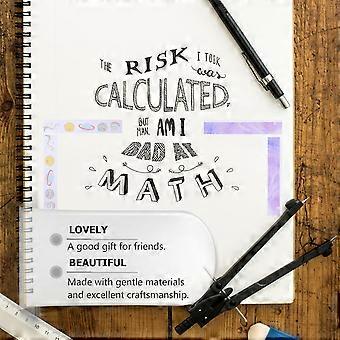 THE RISK I TOOK
was
CALCULATED,
BUT
MAN, AM I
BAD AT
MATH
LOVELY
A good gift for friends.
BEAUTIFUL
Made with gentle materials
and excellent craftsmanship.